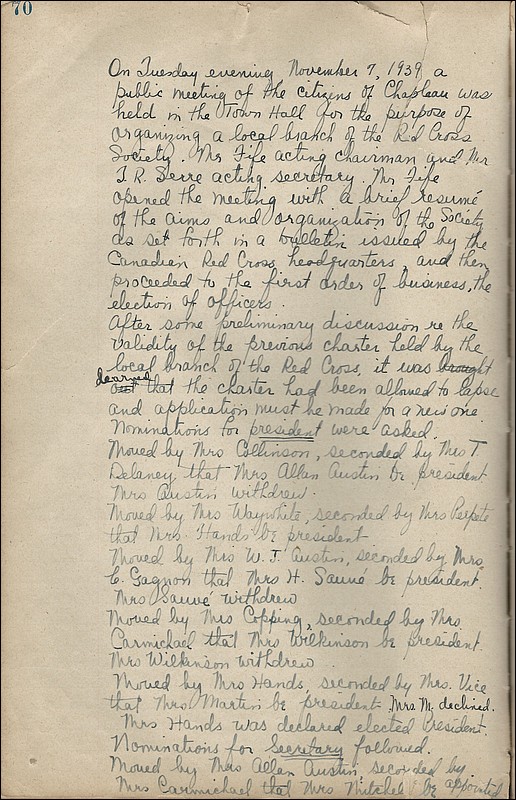 70
On Tuesday evening, November 7, 1939 a
public meeting of the citizens of Chapleau was
held in the Town Hall for the purpose of
organizing a local branch of the Red Cross
Society. Mr Fife acting chairman and Mr
T. R. Serre acting secretary. Mr Fife
opened the meeting with a brief resumé
of the aims and organization of the Society
as set forth in a bulletin issued by the
Canadian Red Cross headquarters, and then
proceeded to the first order of business, the
election of officers.
After some preliminary discussion re the
validity of the previous charter held by the
local branch of the Red Cross, it was brought
learned
out that the charter had been allowed to lapse
and application must be made for a new one.
Nominations for president were asked.
Moved by Mrs Collinson, seconded by Mrs T.
Delaney that Mrs Allan Austin be president
Mrs Austin withdrew.
Moved by Mrs Waywhite, seconded by Mrs
that Mrs Hands be president
Moved by Mrs W. J. Austin, seconded by Mrs.
C. Gagnon that Mrs H. Sauvé be president.
Mrs Sauvé withdrew
Moved by Mrs Copping, seconded by Mrs.
Carmichael that Mrs Wilkinson be president.
Mrs Wilkinson withdrew.
Moved by Mrs Hands, seconded by Mrs. Vice
that Mrs Martin be president. Mrs M. declined.
Mrs Hands was declared elected President.
Nominations for Secretary followed.
Moved by Mrs Allan Austin, seconded by
Mrs Carmichael that Mrs Mitchell be appointed